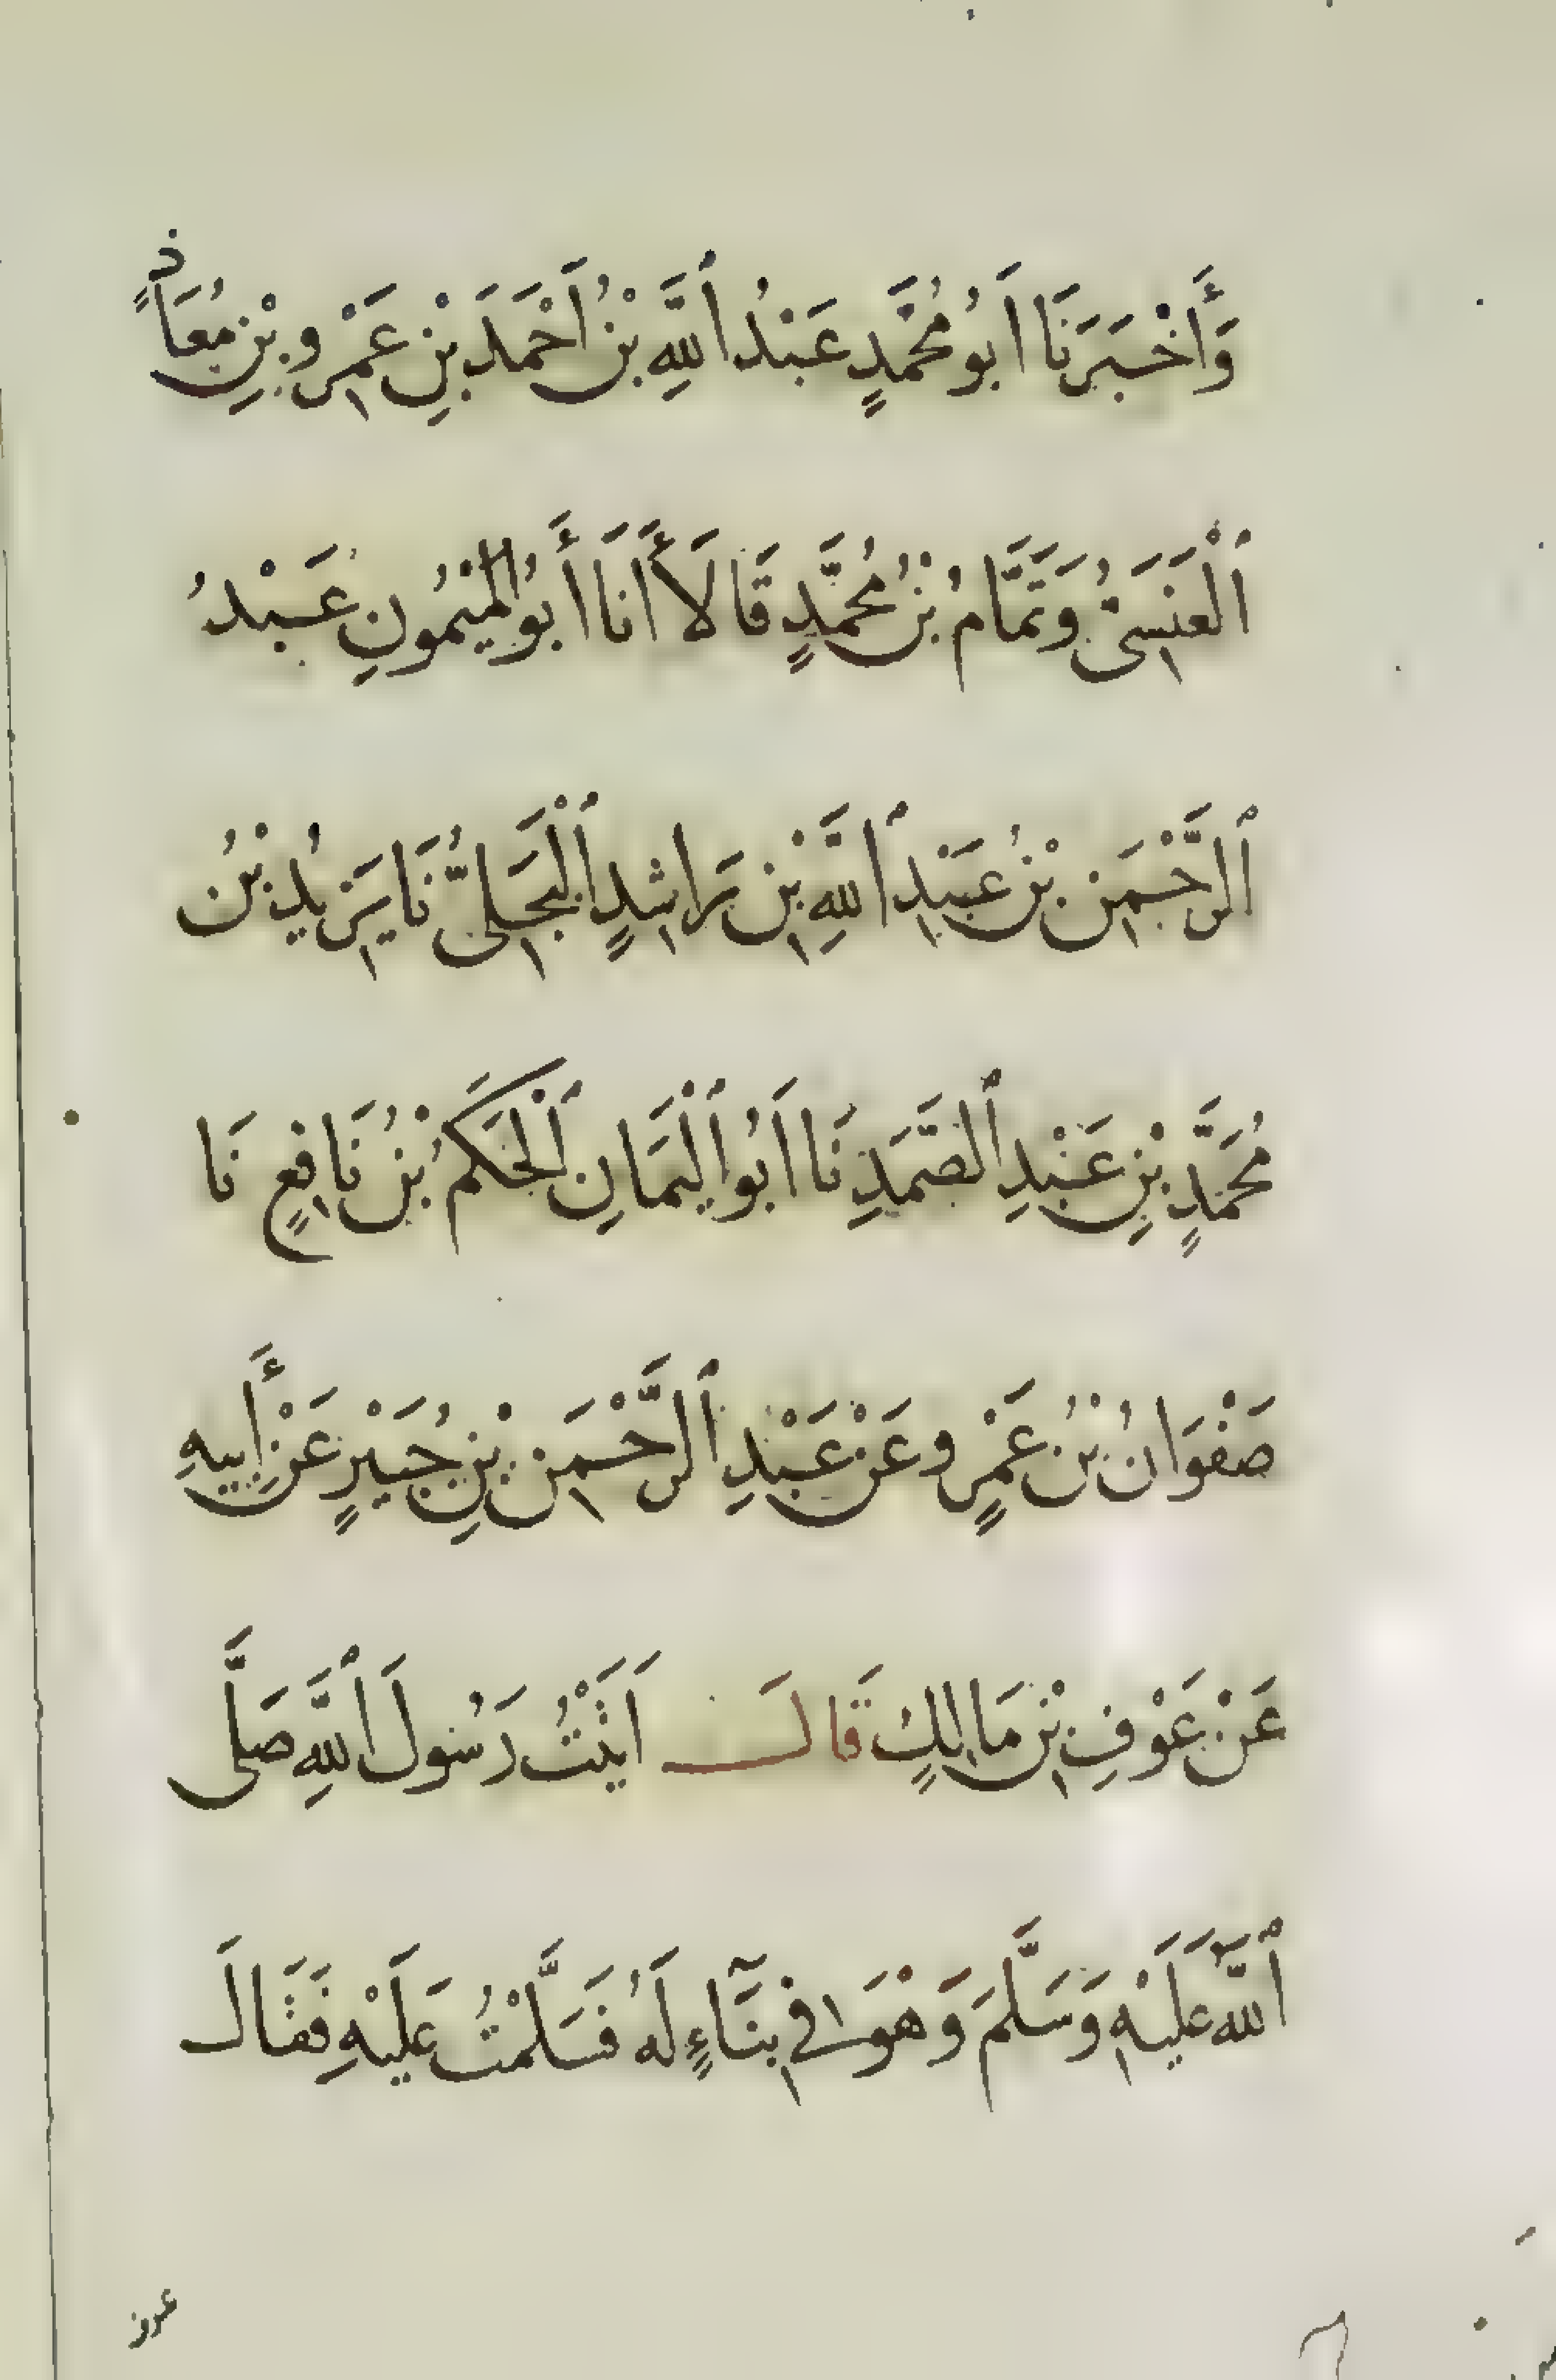 وَأَخْبَرَنَا اَبُو مُحَمَّدٍ عَبْدُ ٱللَّهِ بْنُ اَحْمَدَ بْنِ عَمْرِو بْنِ مُعَاذٍ
ٱلْعَنَسَىُّ وَتَمَّامُ بْنُ مُحَمَّدٍ قَالَا أَنَا أَبُو الْمَيْمُونِ عَبْدُ
ٱلرَّحْمَنِ بْنُ عَبْدِ ٱللَّهِ بْنِ رَاشِدٍ ٱلْبَجَلِىُّ نَا يَزِيدُ بْنُ
مُحَمَّدٍ بْنِ عَبْدِ ٱلصَّمَدِ نَا اَبُو ٱلْيَمَانِ ٱلْحَكَمُ بْنُ نَافِعٍ نَا
صَفْوَانُ بْنُ عَمْرٍو عَنْ عَبْدِ ٱلرَّحْمَنِ بْنِ جُبَيْرٍ عَنْ أَبِيهِ
عَنْ عَوْفِ بْنِ مَالِكٍ قَالَ اَتَيْتُ رَسُولَ ٱللَّهِ صَلَّى
ٱللَّهُ عَلَيْهِ وَسَلَّمَ وَهْوَ فِي بِنَآءٍ لَهُ فَسَلَّمْتُ عَلَيْهِ فَقَالَ